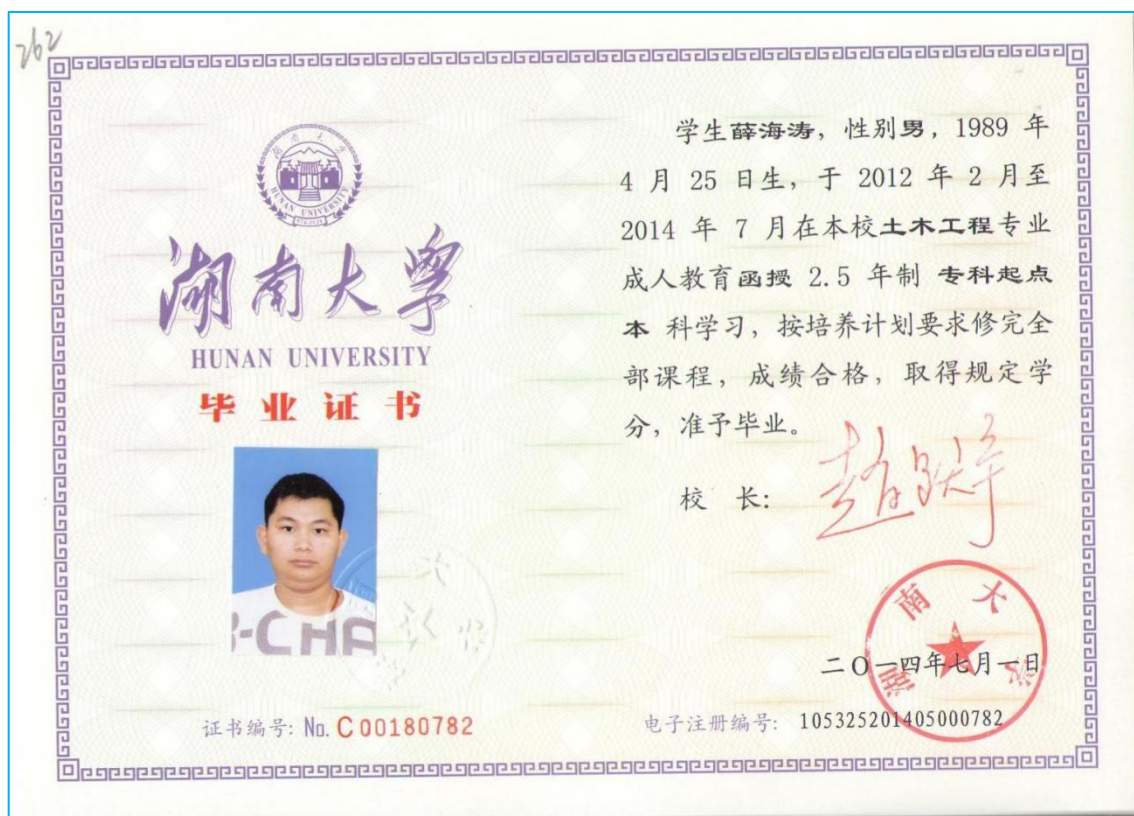 262
湖南大学
HUNAN UNIVERSITY
湖南大学
HUNAN UNIVERSITY
毕业证书
-CHA
证书编号: No. C00180782
学生薛海涛，性别男，1989 年
4 月 25 日生，于 2012 年 2 月至
2014 年 7 月在本校土木工程专业
成人教育函授 2.5 年制 专科起点
本 科学习，按培养计划要求修完全
部课程，成绩合格，取得规定学
分，准予毕业。
校 长:
赵跃宇
湖南大学
二O一四年七月一日
电子注册编号: 105325201405000782